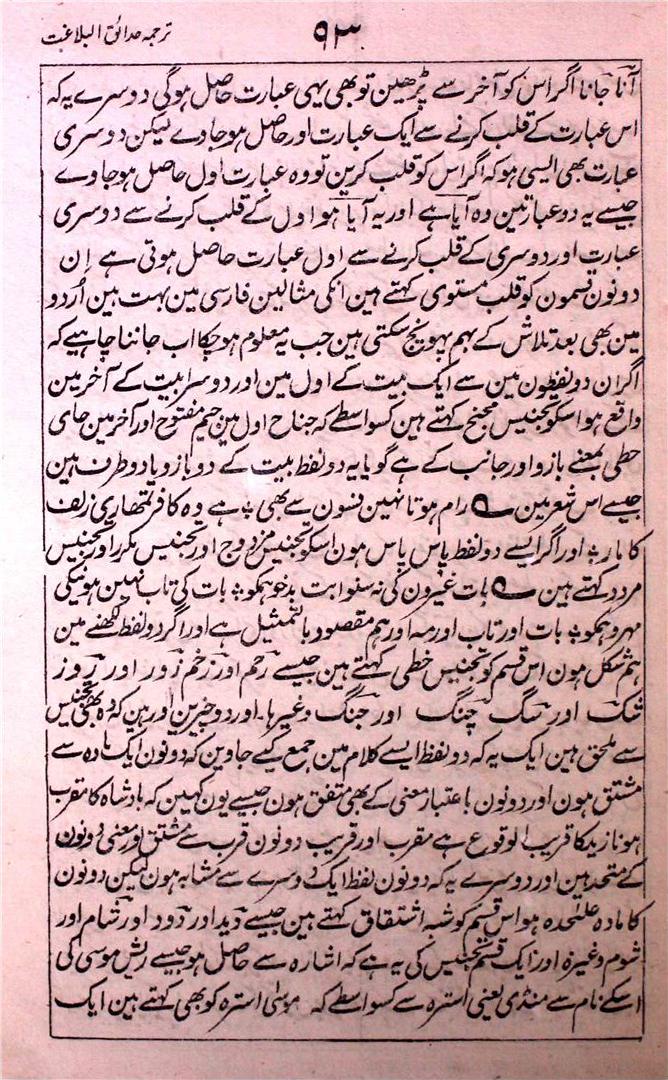 ترجمہ حدائق البلاغت
۹۳
آنا جانا اگر اس کو آخر سے پڑھین تو بھی یہی عبارت حاصل ہو گی دوسرے یہ کہ
اس عبارت کے قلب کرنے سے ایک عبارت اور حاصل ہو جاوے لیکن دوسری
عبارت بھی ایسی ہو کہ اگر اس کو قلب کرین تو وہ عبارت اول حاصل ہو جاوے
جیسے یہ دو عبارتین وہ آیا ہے اور یہ آیا ہو اول کے قلب کرنے سے دوسری
عبارت اور دوسری کے قلب کرنے سے اول عبارت حاصل ہوتی ہے اِن
دونون قسمون کو قلب مستوی کہتے ہین انکی مثالین فارسی مین بہت ہین اُردو
مین بھی بعد تلاش کے بہم پہونچ سکتی ہین جب یہ معلوم ہو چکا اب جاننا چاہیے کہ
اگر ان دو لفظون مین سے ایک بیت کے اول مین اور دوسرا بیت کے آخر مین
واقع ہو اسکو تجنیس مجنح کہتے ہین کسواسطے کہ جناح اول مین جیم مفتوح اور آخر مین حای
حطی بمعنے بازو اور جانب کے ہے گویا یہ دو لفظ بیت کے دو بازو یا دو طرف ہین
جیسے اس شعر مین ؎ رام ہوتا نہین فسون سے بھی ؞ ہے وہ کافر تمھاری زلف
کا مار ؞ اور اگر ایسے دو لفظ پاس پاس ہون اسکو تجنیس مزدوج اور تجنیس مکرر اور تجنیس
مردد کہتے ہین ؎ بات غیرون کی نہ سنوا بت بدخو ہمکو ؞ بات کی تاب نہین ہونیکی
مہرو ہمکو ؞ بات اور تاب اور مہ اور ہم مقصود بالتمثیل ہے اور اگر دو لفظ لکھنے مین
ہم شکل ہون اس قسم کو تجنیس خطی کہتے ہین جیسے رحم اور زخم زور اور روز
شک اور سگ چنگ اور جنگ وغیرہا۔ اور دو چیزین اور ہین کہ وہ بھی تجنیس
سے ملحق ہین ایک یہ کہ دو لفظ ایسے کلام مین جمع کیے جاوین کہ دونون ایک مادہ سے
مشتق ہون اور دونون باعتبار معنی کے بھی متفق ہون جیسے یون کہین کہ بادشاہ کا مقرب
ہونا زید کا قریب الوقوع ہے مقرب اور قریب دونون قرب سے مشتق اور معنی دونون
کے متحد ہین اور دوسرے یہ کہ دونون لفظ ایک دوسرے سے مشابہ ہون لیکن دونون
کا مادہ علٰحدہ ہو اس قسم کو شبہ اشتقاق کہتے ہین جیسے دید اور دود اور شام اور
شوم وغیرہ اور ایک قسم تجنیس کی یہ ہے کہ اشارہ سے حاصل ہو جیسے ریش موسی کی
اسکے نام سے منڈی یعنی اُسترہ سے کسواسطے کہ موسٰی استرہ کو بھی کہتے ہین ایک